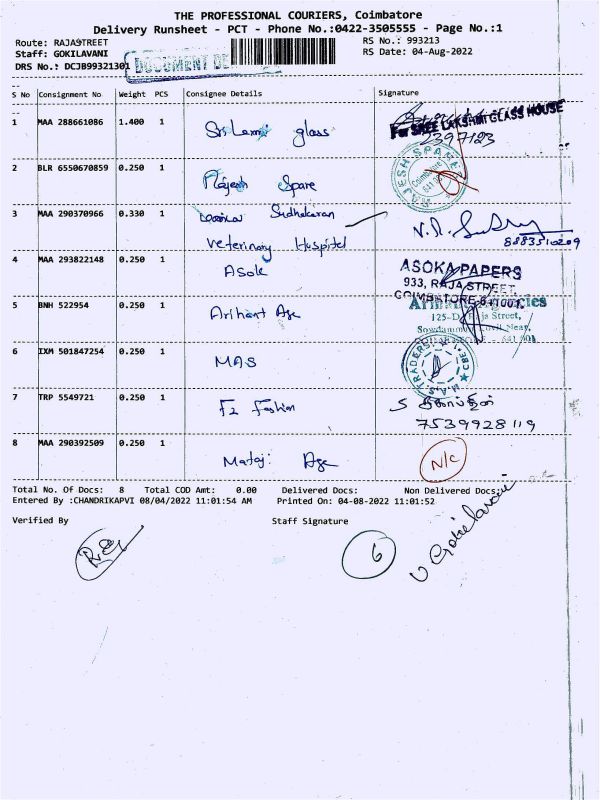 THE PROFESSIONAL COURIERS, Coimbatore
Delivery Runsheet - PCT - Phone No.:0422-3505555 - Page No.:1
Route: RAJASTREET
RS No.: 993213
Staff: GOKILAVANI
RS Date: 04-Aug-2022
DRS No.: DCJB99321301
DOCUMENT DE
S No Consignment No Weight PCS Consignee Details Signature
1 MAA 288661086 1.400 1 Sri Laxmi glass
For SREE LAKSHMI GLASS HOUSE
2397123
2 BLR 6550670859 0.250 1 Rajesh Spare
RAJESH SPARE
Coimbatore
641 00
3 MAA 290370966 0.330 1 Sudhakaran
Veterinary Hospital
8883510209
4 MAA 293822148 0.250 1 Asok
ASOKA PAPERS
933, RAJA STREET,
COIMBATORE-641001.
5 BNH 522954 0.250 1 Arihant Age
125-D, Raja Street,
6 IXM 501847254 0.250 1 MAS
M.A.S. TRADERS CBE-1
7 TRP 5549721 0.250 1 F2 Fashion
7539928119
8 MAA 290392509 0.250 1 Mataji Age
N/C
Total No. Of Docs: 8 Total COD Amt: 0.00 Delivered Docs: Non Delivered Docs:
Entered By :CHANDRIKAPVI 08/04/2022 11:01:54 AM Printed On: 04-08-2022 11:01:52
Verified By Staff Signature
6
V Gokilavani